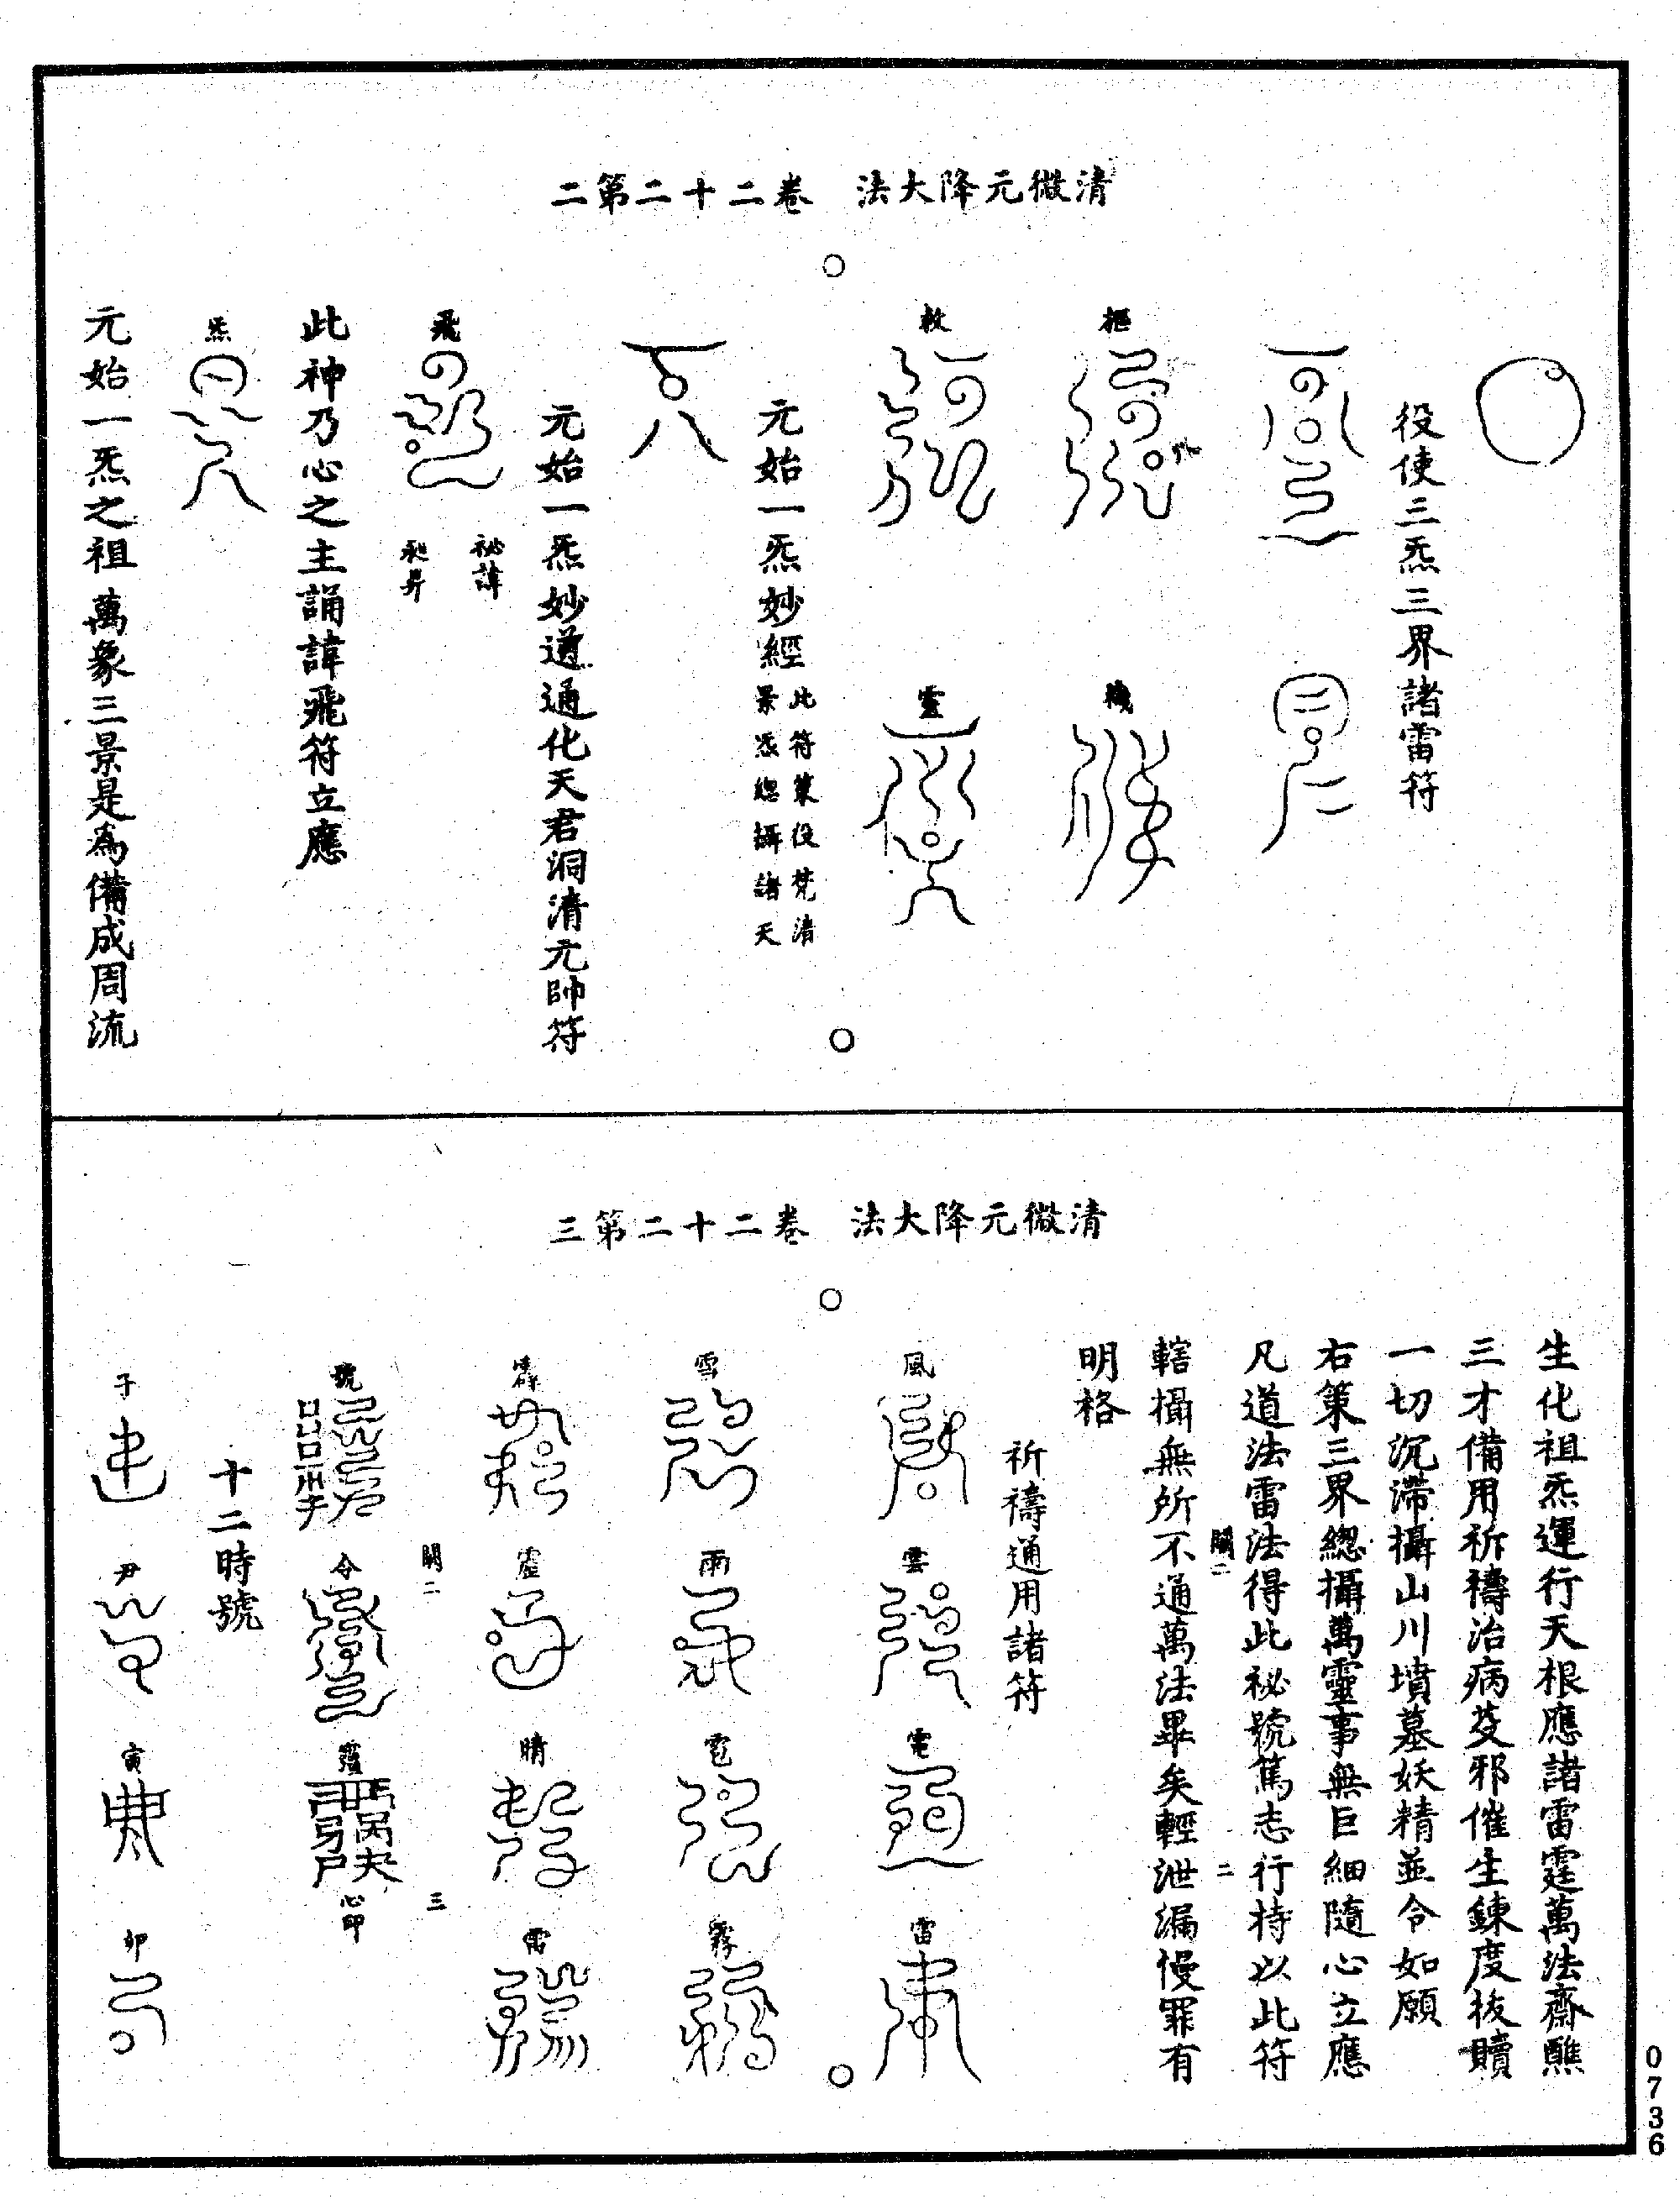 清微元降大法　卷二十二第二
役使三炁三界諸雷符
樞　機
敕　靈
元始一炁妙經此符策役梵清景炁總攝諸天
元始一炁妙道通化天君洞清元帥符
飛
祕諱
昶昇
此神乃心之主誦諱飛符立應
炁
元始一炁之祖萬象三景是為備成周流
清微元降大法　卷二十二第三
生化祖炁運行天根應諸雷霆萬法齋醮
三才備用祈禱治病芟邪催生鍊度拔贖
一切沉滯攝山川墳墓妖精並令如願
右策三界總攝萬靈事無巨細隨心立應
凡道法雷法得此祕號篤志行持以此符
關二　二
轄攝無所不通萬法畢矣輕泄漏慢罪有
明格
祈禱通用諸符
風　雲　電　雷
雪　雨　雹　霧
霹　虛　晴　
關二　三
號　令　　心印
十二時號
子　尹　寅　卯
0736